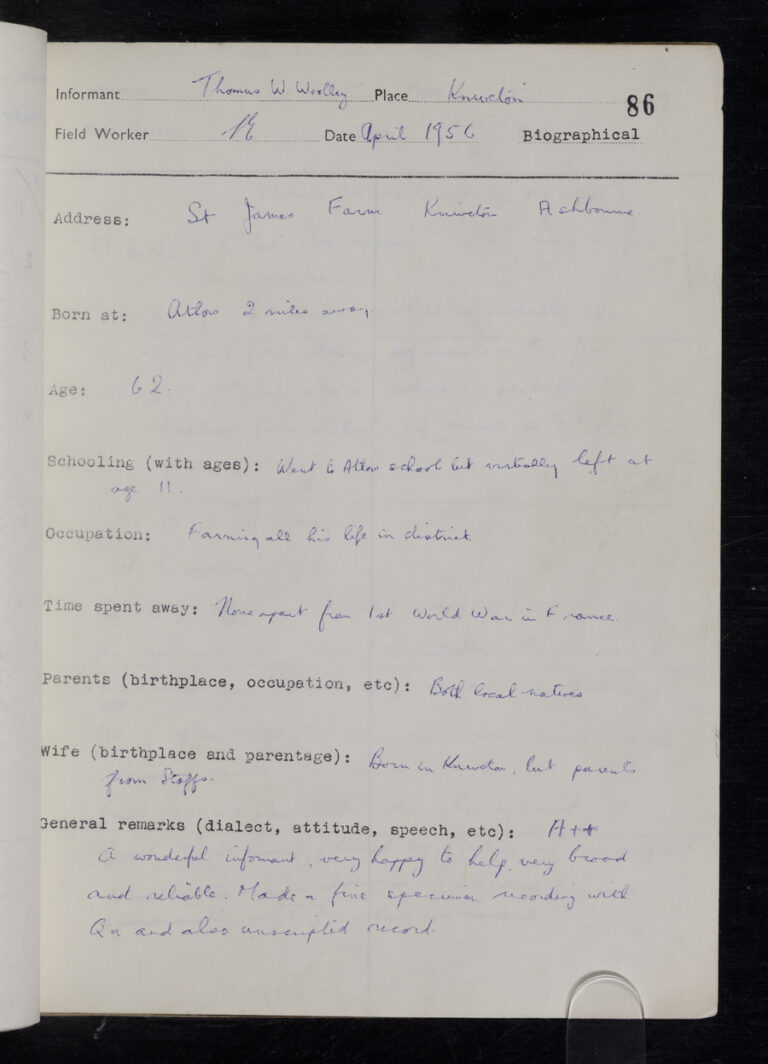 Informant Thomas W. Woolley Place Kniveton 86
Field Worker Date April 1956 Biographical
Address: St James Farm Kniveton Ashbourne
Born at: Atlow 2 miles away.
Age: 62.
Schooling (with ages): Went to Atlow school but virtually left at
age 11.
Occupation: Farming all his life in district
Time spent away: None apart from 1st World War in France.
Parents (birthplace, occupation, etc): Both local natives
Wife (birthplace and parentage): Born in Kniveton, but parents
from Staffs.
General remarks (dialect, attitude, speech, etc): A++
A wonderful informant, very happy to help, very broad
and reliable. Made a fine specimen recording with
Qn and also unscripted record.